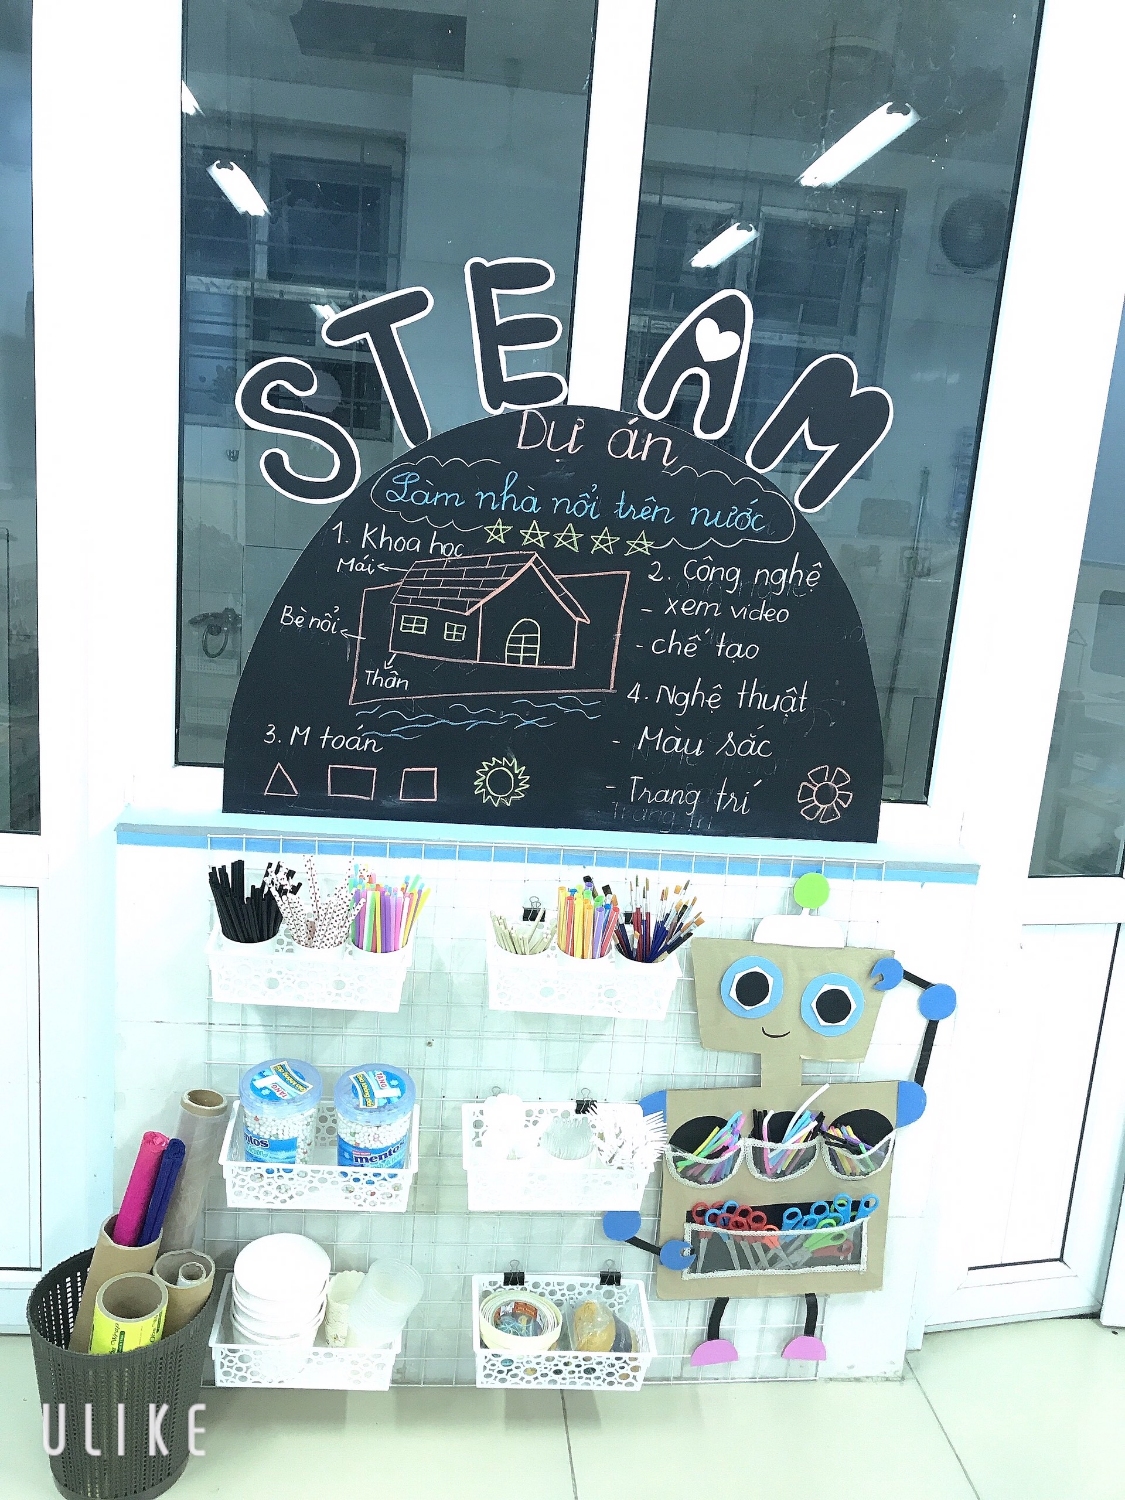 STEAM
Dự án
Làm nhà nổi trên nước
1. Khoa học
Mái
Bè nổi
Thân
2. Công nghệ
- xem video
- chế tạo
3. M toán
4. Nghệ thuật
- Màu sắc
- Trang trí
mentos
mentos
ULIKE